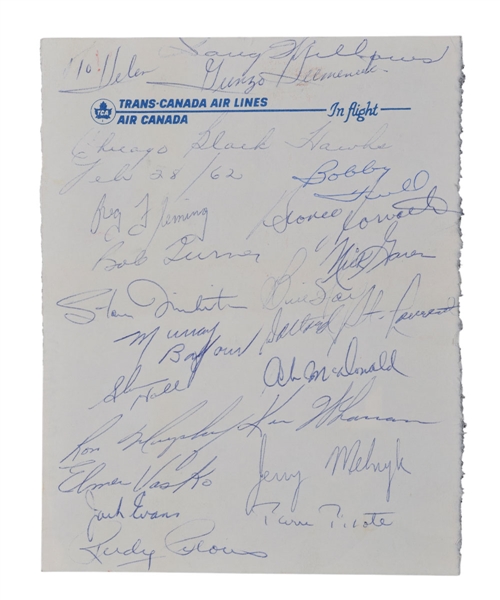 To Helen
Gunzo
TCA TRANS-CANADA AIR LINES In flight
AIR CANADA
Chicago Black Hawks
Feb 28/62
Bobby Hull
Reg Fleming
Bronco Horvath
Bob Turner
Stan Mikita
Bill Hay
Murray Balfour
Dollard St. Laurent
Ab McDonald
Ron Murphy Ken Wharram
Elmer Vasko
Jerry Melnyk
Jack Evans
Pierre Pilote
Rudy Pilous